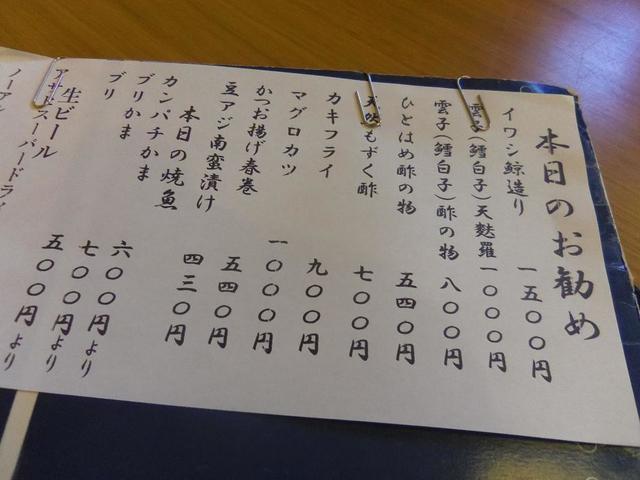 本日のお勧め
イワシ鯨造り 一五〇〇円
雲子(鱈白子)天麩羅 一〇〇〇円
雲子(鱈白子)酢の物 八〇〇円
ひとはめ酢の物 五四〇円
天然もずく酢 七〇〇円
カキフライ 九〇〇円
マグロカツ 一〇〇〇円
かつお揚げ春巻 五四〇円
豆アジ南蛮漬け 四三〇円
本日の焼魚
カンパチかま 六〇〇円より
ブリかま 七〇〇円より
ブリ 五〇〇円より
生ビール
アサヒスーパードライ